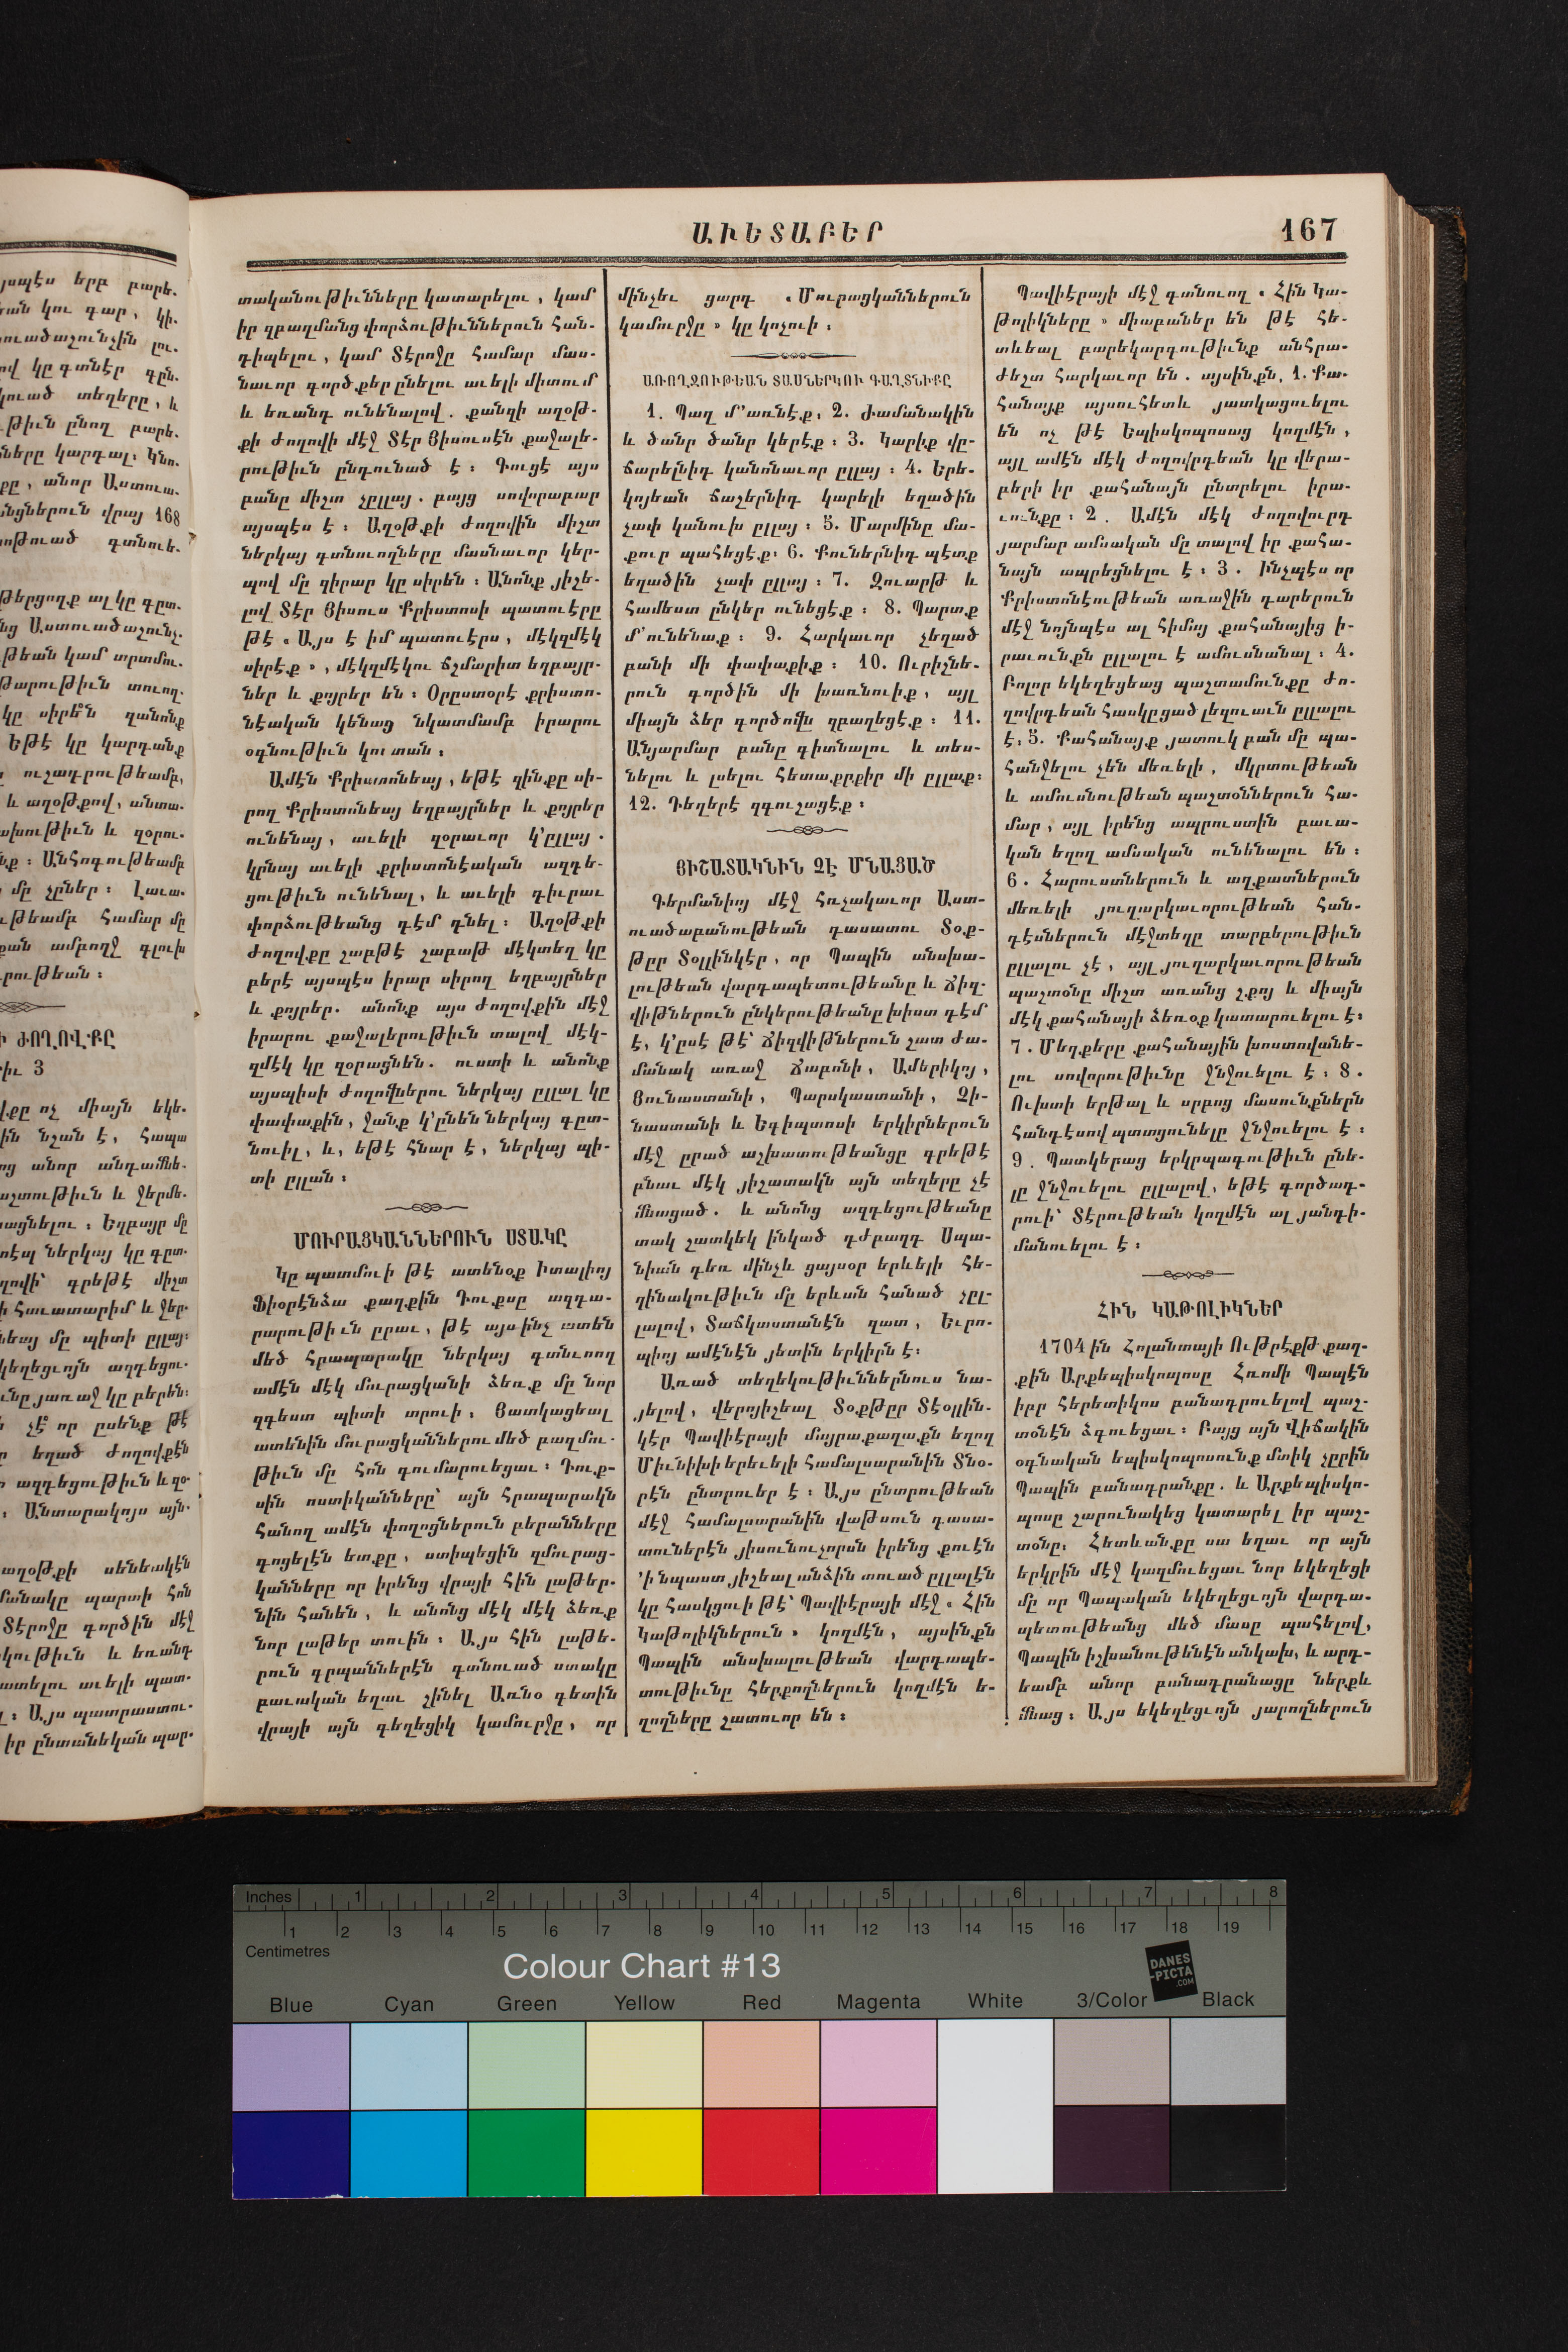 ԱՒԵՏԱԲԵՐ
167
տականութիւնները կատարելու, կամ
իր զբաղմանց փորձութիւններուն հան-
դիպելու, կամ Տէրոջը համար մաս-
նաւոր գործքեր ընելու աւելի միտում
և եռանդ ունենալով. քանզի աղօթ-
քի ժողովի մէջ Տէր Յիսուսէն քաջալե-
րութիւն ընդունած է։ Գուցէ այս
բանը միշտ չըլլայ. բայց սովորաբար
այսպէս է։ Աղօթքի ժողովին միշտ
ներկայ գտնուողները մասնաւոր կեր-
պով մը զիրար կը սիրեն։ Անոնք յիշե-
լով Տէր Յիսուս Քրիստոսի պատուէրը
թէ «Այս է իմ պատուէրս, մէկզմէկ
սիրէք», մէկզմէկու ճշմարիտ եղբայր-
ներ և քոյրեր են։ Օրըստօրէ քրիստո-
նէական կենաց նկատմամբ իրարու
օգնութիւն կու տան։
Ամէն Քրիստոնեայ, եթէ զինքը սի-
րող Քրիստոնեայ եղբայրներ և քոյրեր
ունենայ, աւելի զօրաւոր կ՚ըլլայ.
կրնայ աւելի քրիստոնէական ազդե-
ցութիւն ունենալ, և աւելի դիւրաւ
փորձութեանց դէմ դնել։ Աղօթքի
ժողովքը շաբթէ շաբաթ մէկտեղ կը
բերէ այսպէս իրար սիրող եղբայրներ
և քոյրեր. անոնք այս ժողովքին մէջ
իրարու քաջալերութիւն տալով մէկ-
զմէկ կը զօրացնեն. ուստի և անոնք
այսպիսի ժողովներու ներկայ ըլլալ կը
փափաքին, ջանք կ՚ընեն ներկայ գըտ-
նուիլ, և, եթէ հնար է, ներկայ պի-
տի ըլլան։
ՄՈՒՐԱՑԿԱՆՆԵՐՈՒՆ ՍՏԱԿԸ
Կը պատմուի թէ ատենօք Իտալիոյ
Ֆիօրէնձա քաղքին Դուքսը ազդա-
րարութիւն ըրաւ, թէ այսինչ ատեն
մեծ հրապարակը ներկայ գտնւող
ամէն մէկ մուրացկանի ձեռք մը նոր
զգեստ պիտի տրուի։ Յատկացեալ
ատենին մուրացկաններու մեծ բազմու-
թիւն մը հոն գումարուեցաւ։ Դուք-
սին ոստիկանները՝ այն հրապարակն
հանող ամէն փողոցներուն բերանները
գոցելէն ետքը, ստիպեցին զմուրաց-
կանները որ իրենց վրայի հին լաթեր-
նին հանեն, և անոնց մէկ մէկ ձեռք
նոր լաթեր տուին։ Այս հին լաթե-
րուն գրպաններէն գտնուած ստակը
բաւական եղաւ շինել Առնօ գետին
վրայի այն գեղեցիկ կամուրջը, որ
մինչեւ ցարդ «Մուրացկաններուն
կամուրջը» կը կոչուի։
ԱՌՈՂՋՈՒԹԵԱՆ ՏԱՍՆԵՐԿՈՒ ԳԱՂՏՆԻՔԸ
1. Պաղ մ՚առնէք։ 2. Ժամանակին
և ծանր ծանր կերէք։ 3. Կարիք վը-
ճարելնիդ կանոնաւոր ըլլայ։ 4. Երե-
կոյեան ճաշերնիդ կարելի եղածին
չափ կանուխ ըլլայ։ 5. Մարմինը մա-
քուր պահեցէք։ 6. Քուներնիդ պէտք
եղածին չափ ըլլայ։ 7. Զուարթ և
համեստ ընկեր ունեցէք։ 8. Պարտք
մ՚ունենաք։ 9. Հարկաւոր չեղած
բանի մի փափաքիք։ 10. Ուրիշնե-
րուն գործին մի խառնուիք, այլ
միայն ձեր գործովն զբաղեցէք։ 11.
Անյարմար բանը գիտնալու և տես-
նելու և լսելու հետաքրքիր մի ըլլաք։
12. Դեղերէ զգուշացէք։
ՅԻՇԱՏԱԿՆԻՆ ՉԷ ՄՆԱՑԱԾ
Գերմանիոյ մէջ հռչակաւոր Աստ-
ուածաբանութեան դասատու Տօք-
թըր Տօլլինկէր, որ Պապին անսխա-
լութեան վարդապետութեանը և Ճիզ-
վիթներուն ընկերութեանը խիստ դէմ
է, կ՚ըսէ թէ՝ Ճիզվիթներուն շատ ժա-
մանակ առաջ Ճաբոնի, Ամերիկոյ,
Յունաստանի, Պարսկաստանի, Չի-
նաստանի և Եգիպտոսի երկիրներուն
մէջ ըրած աշխատութեանցը գրեթէ
բնաւ մէկ յիշատակն այն տեղերը չէ
մնացած. և անոնց ազդեցութեանը
տակ շատկեկ ինկած դժբաղդ Սպա-
նիան դեռ մինչև ցայսօր երևելի հե-
ղինակութիւն մը երևան հանած չըլ-
լալով, Տաճկաստանէն զատ, Եւրո-
պիոյ ամէնէն յետին երկիրն է։
Առած տեղեկութիւններնուս նա-
յելով, վերոյիշեալ Տօքթըր Տէօլլին-
կէր Պավիէրայի մայրաքաղաքն եղող
Միւնիխի երեւելի համալսարանին Տնօ-
րէն ընտրուեր է։ Այս ընտրութեան
մէջ համալսարանին վաթսուն դասա-
տուներէն յիսունուչորսն իրենց քուէն
՚ի նպաստ յիշեալ անձին տուած ըլլալէն
կը հասկցուի թէ՝ Պավիէրայի մէջ «Հին
Կաթոլիկներուն» կողմէն, այսինքն
Պապին անսխալութեան վարդապե-
տութիւնը հերքողներուն կողմէն ե-
ղողները շատուոր են։
Պավիէրայի մէջ գտնուող «Հին Կա-
թոլիկները» միաբաներ են թէ հե-
տևեալ բարեկարգութիւնք անհրա-
ժեշտ հարկաւոր են. այսինքն, 1. Քա-
հանայք այսուհետև յատկացուելու
են ոչ թէ Եպիսկոպոսաց կողմէն,
այլ ամէն մէկ ժողովրդեան կը վերա-
բերի իր քահանայն ընտրելու իրա-
ւունքը։ 2. Ամէն մէկ ժողովուրդ
յարմար ամսական մը տալով իր քահա-
նայն ապրեցնելու է։ 3. Ինչպէս որ
Քրիստոնէութեան առաջին դարերուն
մէջ նոյնպէս ալ հիմայ քահանայից ի-
րաւունքն ըլլալու է ամուսնանալ։ 4.
Բոլոր եկեղեցեաց պաշտամունքը ժո-
ղովրդեան հասկըցած լեզուաւն ըլլալու
է։ 5. Քահանայք յատուկ բան մը պա-
հանջելու չեն մեռելի, մկրտութեան
և ամուսնութեան պաշտօններուն հա-
մար, այլ իրենց ապրուստին բաւա-
կան եղող ամսական ունենալու են։
6. Հարուստներուն և աղքատներուն
մեռելի յուղարկաւորութեան հան-
դէսներուն մէջտեղը տարբերութիւն
ըլլալու չէ, այլ յուղարկաւորութեան
պաշտօնը միշտ առանց շքոյ և միայն
մէկ քահանայի ձեռօք կատարուելու է։
7. Մեղքերը քահանային խոստովանե-
լու սովորութիւնը ջնջուելու է։ 8.
Ուխտի երթալ և սրբոց մասունքներն
հանդէսով պտտցունելը ջնջուելու է։
9. Պատկերաց երկրպագութիւն ընե-
լը ջնջուելու ըլլալով, եթէ գործադ-
րուի՝ Տէրութեան կողմէն ալ յանդի-
մանուելու է։
ՀԻՆ ԿԱԹՈԼԻԿՆԵՐ
1704ին Հոլանտայի Ութրէքթ քաղ-
քին Արքեպիսկոպոսը Հռոմի Պապէն
իբր հերետիկոս բանադրուելով պաշ-
տօնէն ձգուեցաւ։ Բայց այն Վիճակին
օգնական եպիսկոպոսունք մտիկ չըրին
Պապին բանադրանքը. և Արքեպիսկո-
պոսը շարունակեց կատարել իր պաշ-
տօնը։ Հետևանքը սա եղաւ որ այն
երկրին մէջ կազմուեցաւ նոր եկեղեցի
մը որ Պապական եկեղեցւոյն վարդա-
պետութեանց մեծ մասը պահելով,
Պապին իշխանութենէն անկախ, և արդ-
եամբ անոր բանադրանացը ներքև
մնաց։ Այս եկեղեցւոյն յարողներուն
Inches 1 2 3 4 5 6 7 8
1 2 3 4 5 6 7 8 9 10 11 12 13 14 15 16 17 18 19
Centimetres
Colour Chart #13
DANES
-PICTA
.COM
Blue Cyan Green Yellow Red Magenta White 3/Color Black